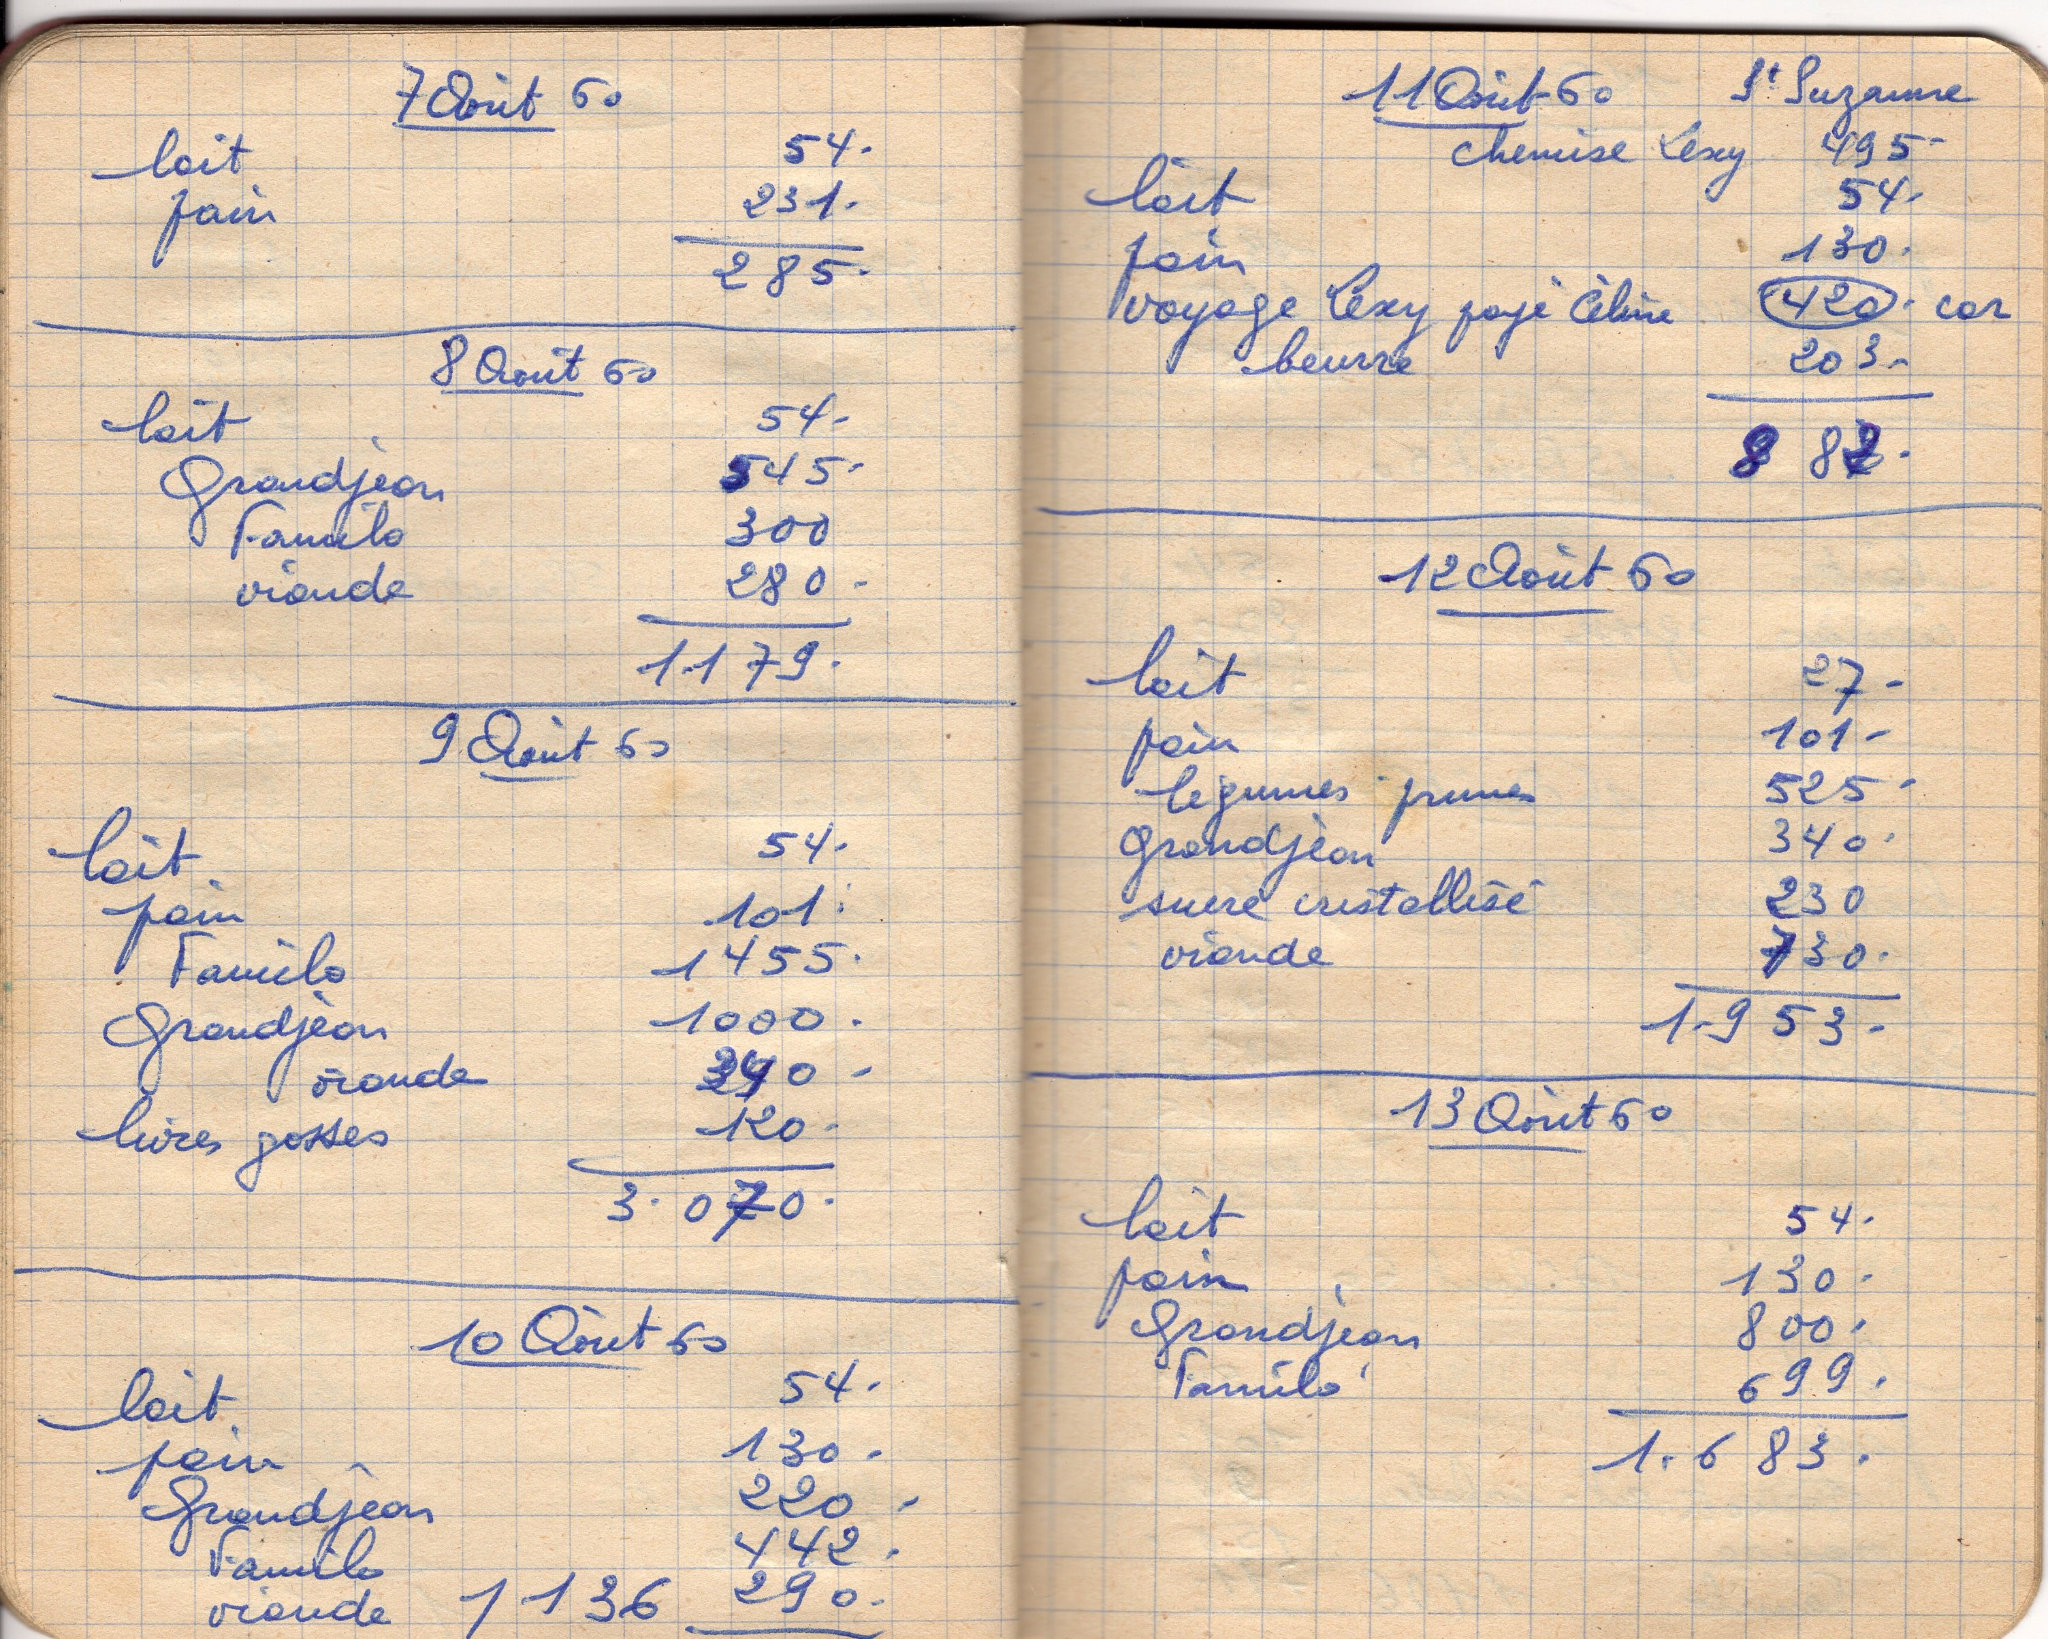 7 Août 60
lait 54.
pain 231.
285.
8 Août 60
lait 54.
Grandjean 545.
Familo 300
viande 280.
1.179.
9 Août 60
lait 54.
pain 101.
Familo 1455.
Grandjean 1000.
viande 340.
livres gosses 120.
3.070.
10 Août 60
lait 54.
pain 130.
Grandjean 220.
Familo 442.
viande 1136 290.
11 Août 60 St Suzanne
chemise Lexy 495
lait 54.
pain 130.
voyage Lexy payé Céline 420. car
beurre 203.
882.
12 Août 60
lait 27.
pain 101.
légumes prunes 525.
Grandjean 340.
sucre cristallisé 230
viande 730.
1.953.
13 Août 60
lait 54.
pain 130.
Grandjean 800.
Familo 699.
1.683.